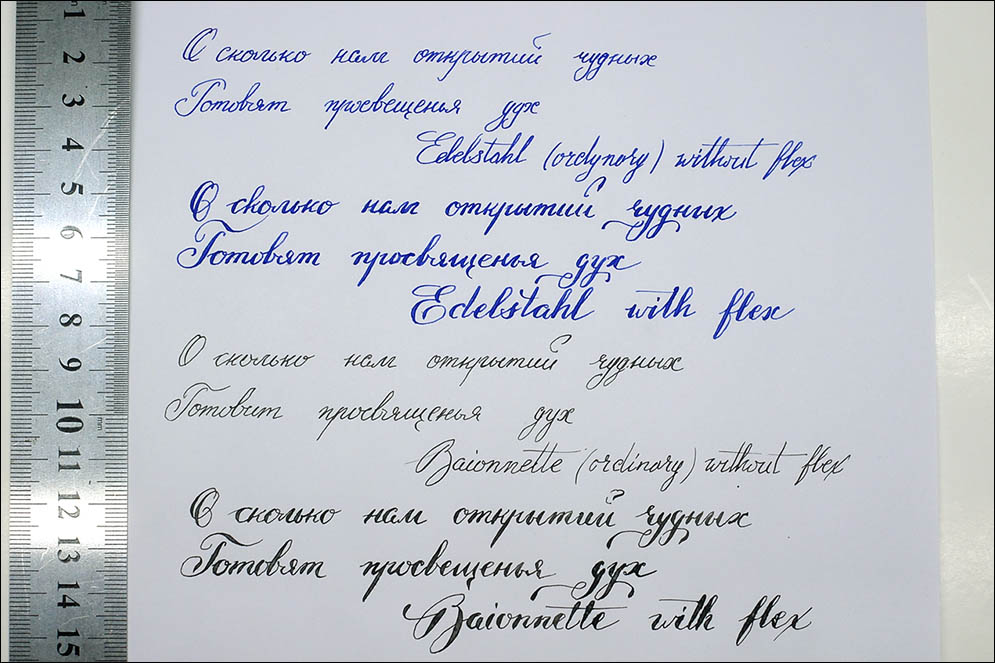 О сколько нам открытий чудных
Готовят просвещенья дух
Edelstahl (ordynory) without flex
О сколько нам открытий чудних
Готовят просвященья дух
Edelstahl with flex
О сколько нам открытий чудных
Готовит просвященья дух
Baionnette (ordinary) without flex
О сколько нам открытий чудных
Готовят просвещенья дух
Baionnette with flex
1
2
3
4
5
6
7
8
9
10
mm
11
12
13
14
15